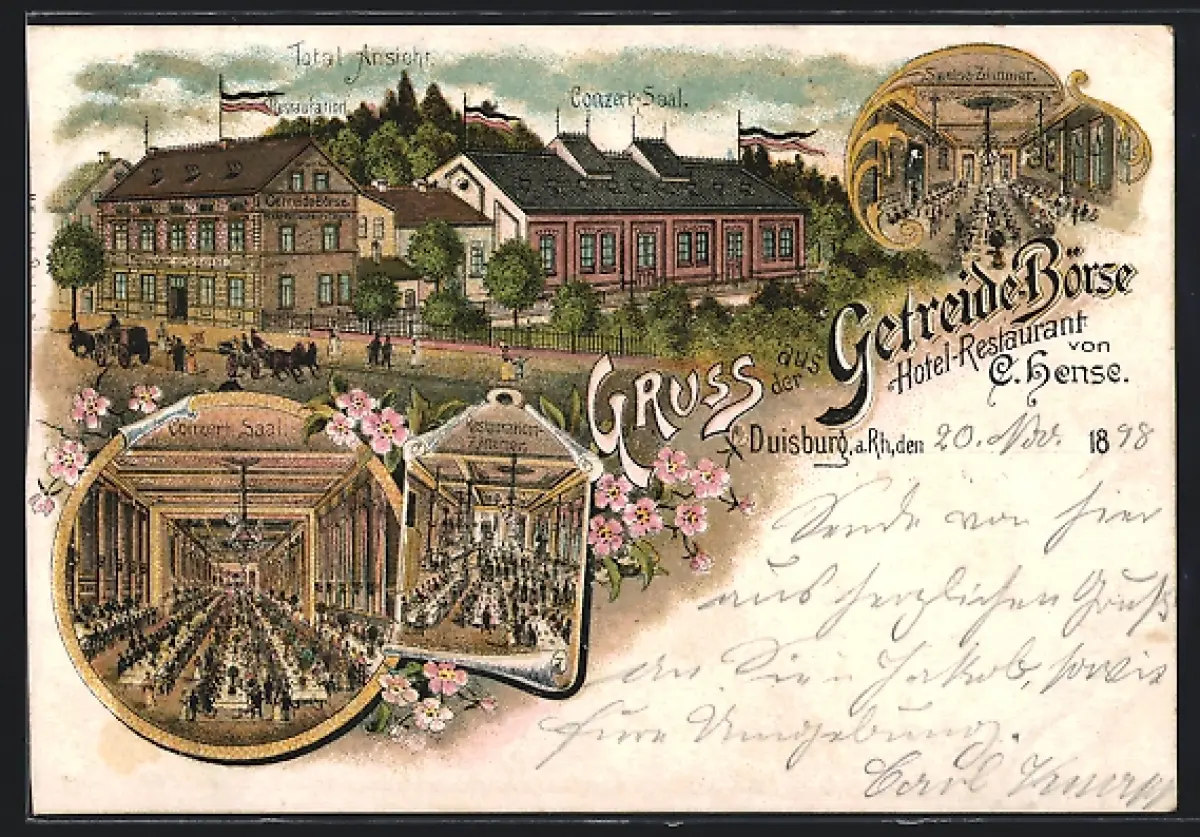 Total Ansicht.
Restauration
Conzert-Saal.
Speise-Zimmer.
Getreide Börse
Conzert Saal
Restaurations-
Zimmer.
GRUSS aus der Getreide-Börse
Hotel-Restaurant
von
C. Hense.
Duisburg, a. Rh, den 20. Nov. 1898
Sende von hier
aus herzlichen Gruß
an Sie u Jakob, sowie
Ihre Umgebung.
Carl Knapp